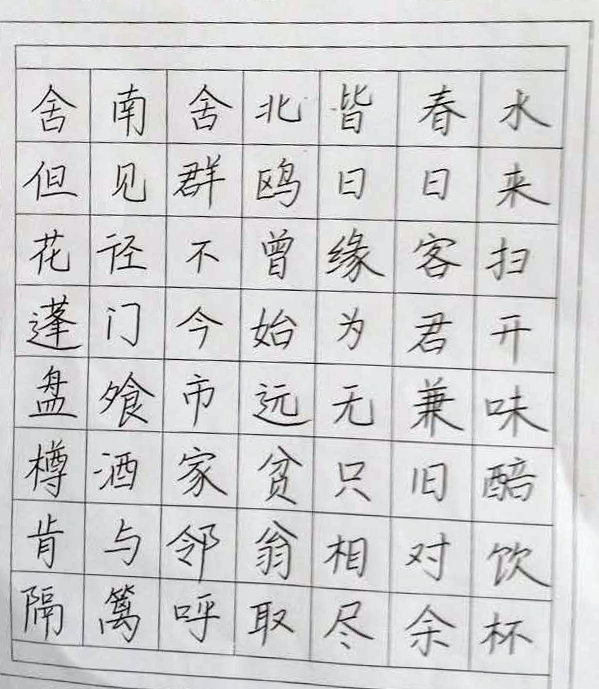 舍南舍北皆春水
但见群鸥日日来
花径不曾缘客扫
蓬门今始为君开
盘飧市远无兼味
樽酒家贫只旧醅
肯与邻翁相对饮
隔篱呼取尽余杯